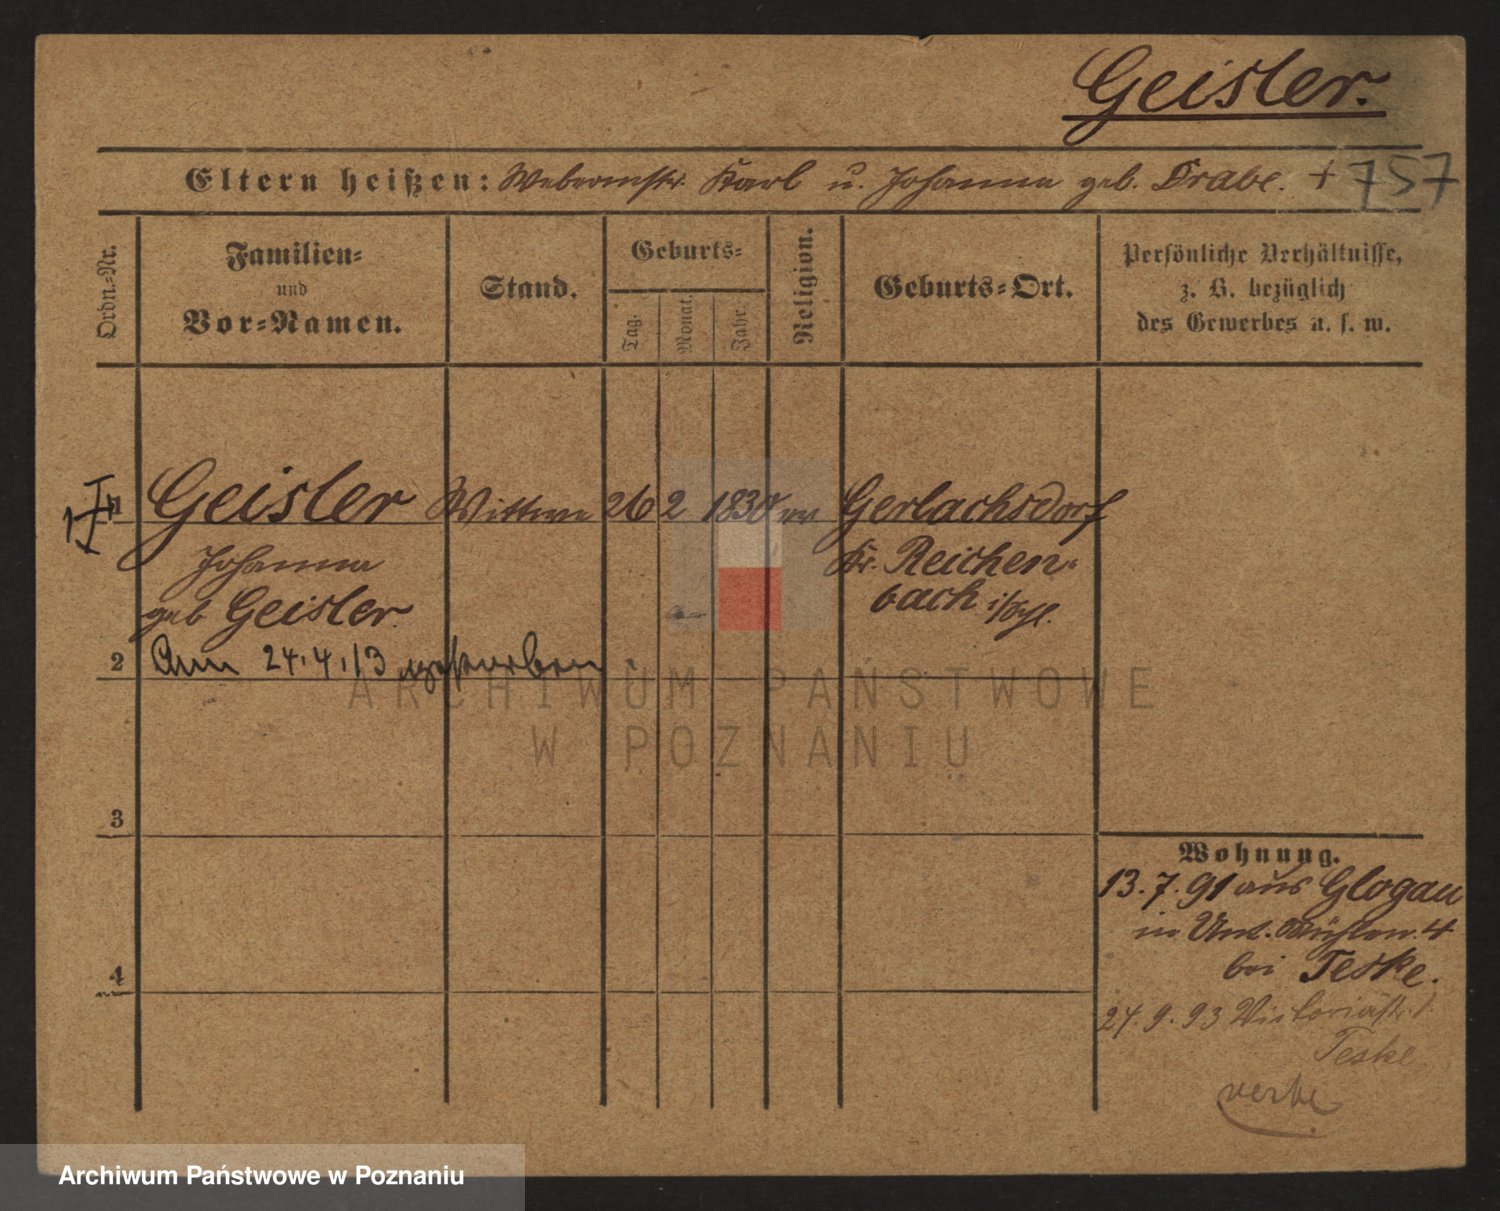 Geisler.
Eltern heißen: Webermstr. Karl u. Johanna geb. Trabe. + 757
Ordn.-Nr.
Familien-
und
Vor-Namen.
Stand.
Geburts-
Tag.
Monat.
Jahr.
Religion.
Geburts-Ort.
Persönliche Verhältnisse,
z. B. bezüglich
des Gewerbes u. s. w.
1 Geisler Wittwe 26 2 1830 ev Gerlachsdorf
Johanna Kr. Reichen-
geb Geisler. bach i/Schl.
2 Am 24.4.13 gestorben
ARCHIWUM PAŃSTWOWE
W POZNANIU
3
Wohnung.
13.7.91 aus Glogau
in Unt. Mühlen. 4
bei Teske.
4
27.9.93 Victoriastr.
Teske
Archiwum Państwowe w Poznaniu